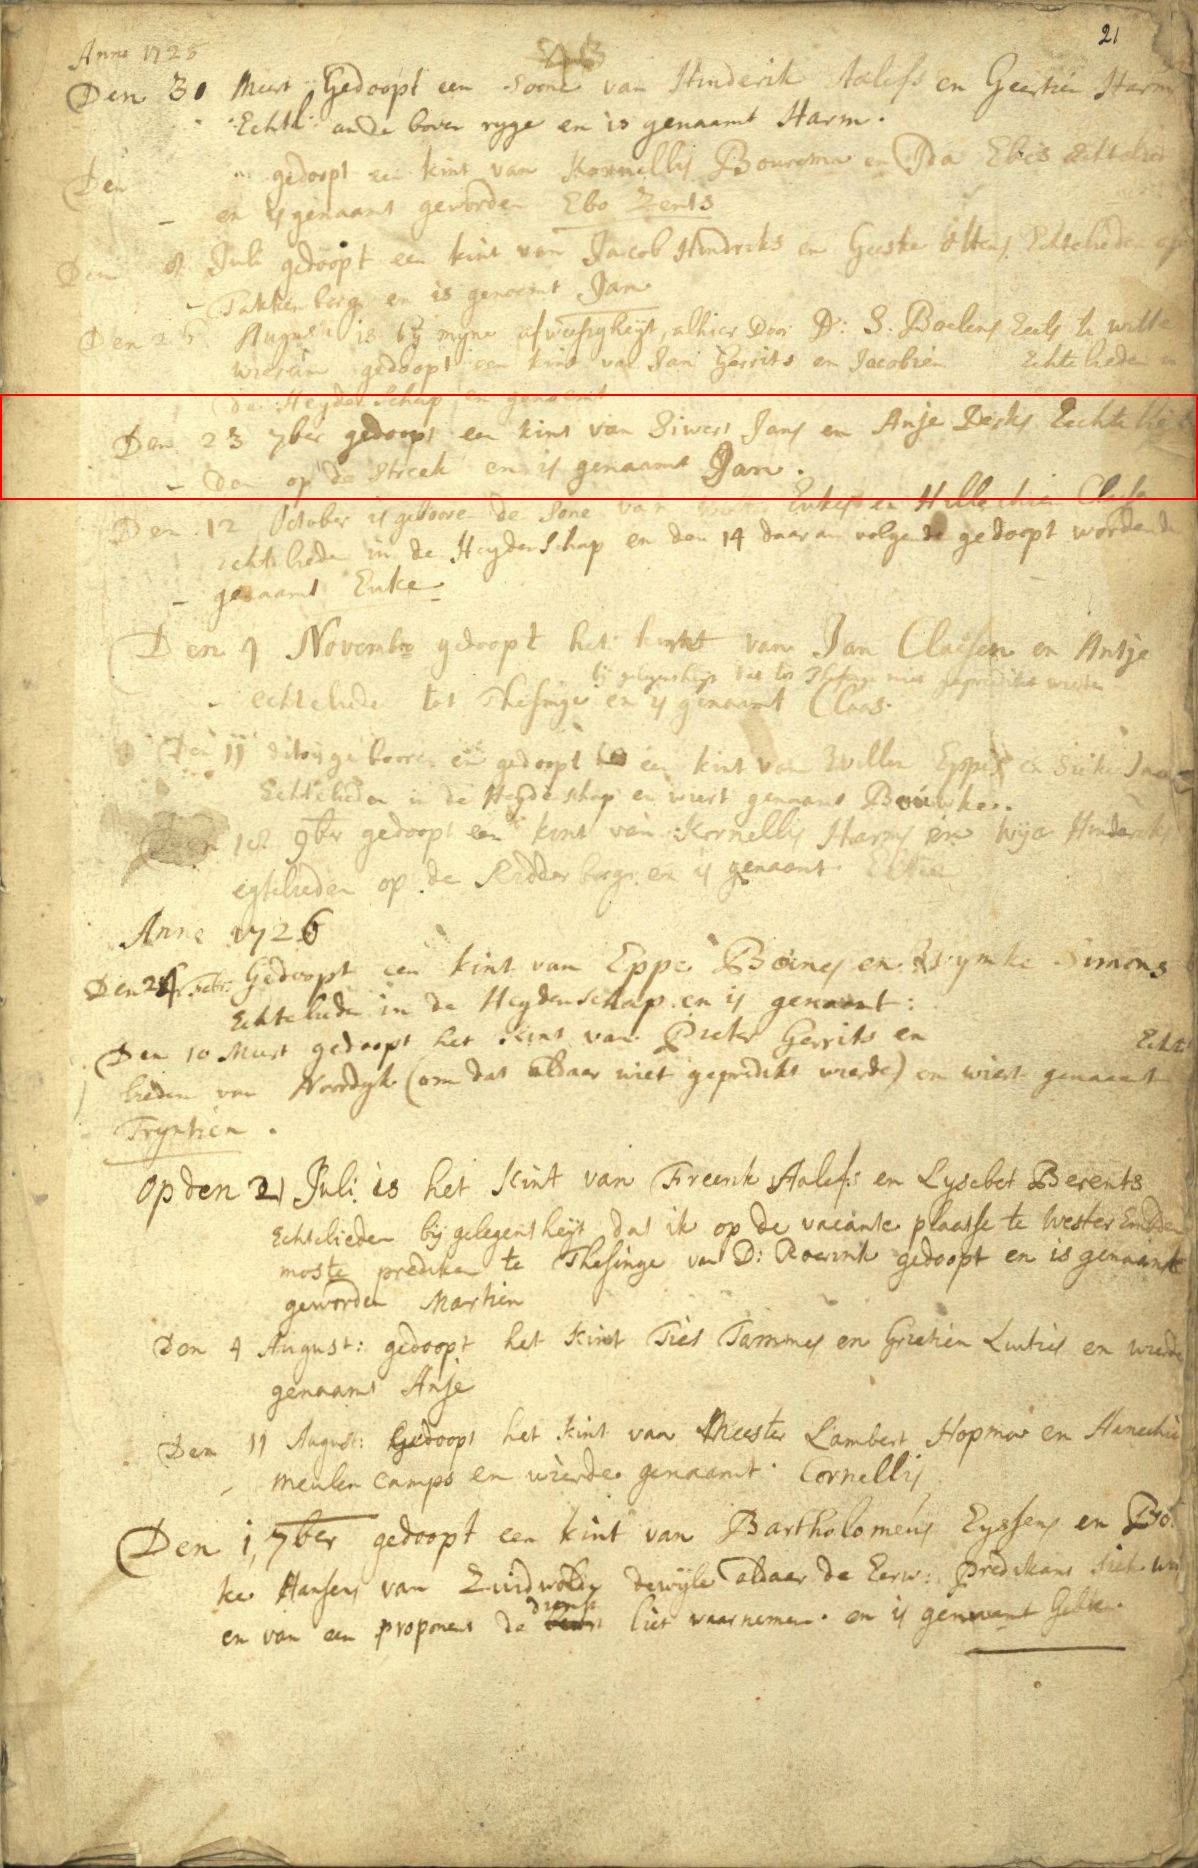 21
Anno 1725
Den 30 Meert Gedoopt een soone van Hinderik Aalefs en Geertien Harms
Echtl: an de boven ryge en is genaamt Harm.
Den gedoopt een kint van Kornellis Bouwema en Ida Ebes Echtelied
en is genaamt geworden Ebo Zents
Den 8 Juli gedoopt een kint van Jacob Hindriks en Geeske Oltens Echtelieden op
Takkenborg en is genoemt Jan
Den 26 August is by myne afweesigheyt, alhier door D: S: Boelens Eccl: te witte
wierum gedoopt een kint van Jan Gerrits en Jacobien Echtelieden in
de Heydenschap en genoemt
Den 23 7ber gedoopt een kint van Siwert Jans en Anje Derks Eechte lie
den op de streek en is genaamt Jan.
Den 12 October is geboren de sone van Eukes en Hillechien Claess
echtelieden in de Heydenschap en den 14 daar an volgende gedoopt wordende
genaamt Euke
Den 1 November gedoopt het kint van Jan Claesen en Antje
by gelegenheyt dat tot Thesinge niet gepredikt wierde
echteliede tot Thesinge en is genaamt Claas.
Den 11 dito geboren en gedoopt een kint van Willem Eppes en Sieke
Echtelieden in de Heydeschap en wiert genaamt Bouwke.
Den 18 9ber gedoopt een kint van Kornellis Harms en Wija Hinderiks
egtelieden op de Ridderborge en is genaamt
Anno 1726
Den 24 Febr: Gedoopt een kint van Eppe Boines en Zwymke Simons
Echtelieden in de Heydenschap en is genaamt:
Den 10 Meert gedoopt het kint van Pieter Gerrits en Echte
lieden van Noordyk (om dat aldaar niet gepredikt wierde) en wiert genaamt
Tryntien.
Op den 21 Juli is het kint van Freerik Aalefs en Lysebet Berents
Echtelieden bij gelegentheyt dat ik op de vacante plaatse te Wester Emden
moste prediken te Thesinge van D: Roerink gedoopt en is genaamt
geworden Martien
Den 4 August: gedoopt het kint Ties Tammes en Grietien Luities en wierde
genaamt Anje
Den 11 August: Gedoopt het kint van Meester Lambert Hopma en Annechie
meulen camps en wierde genaamt. Cornellis
Den 1, 7ber gedoopt een kint van Bartholomeus Eyssens en Bo:
ke Hansens van Zuidwolde dewijle aldaar de Eerw: Predikant siek was
dienst
en van een proponent de liet waarnemen. en is genaamt